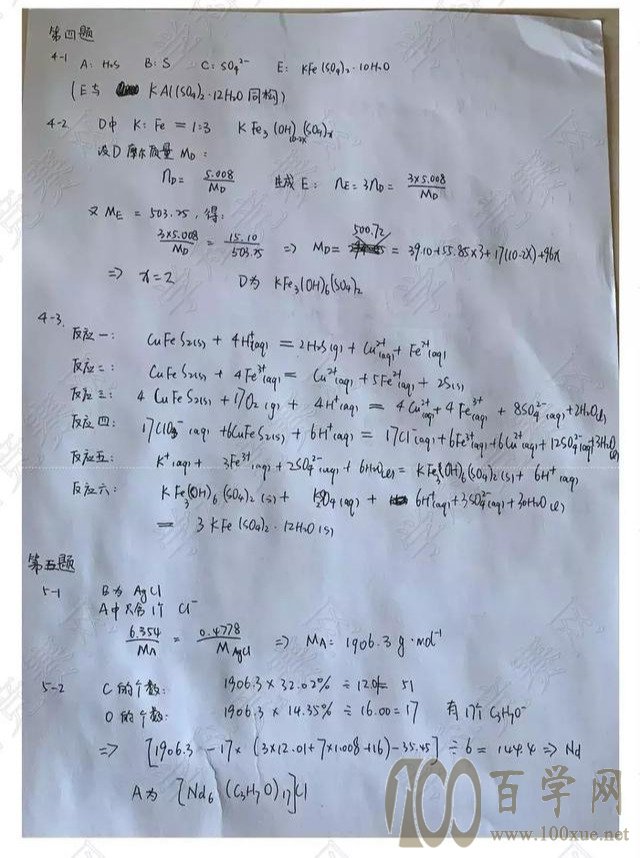 第四题
4-1 A: H₂S B: S C: SO₄²⁻ E: KFe(SO₄)₂·10H₂O
(E与 KAl(SO₄)₂·12H₂O 同构)
4-2 D中 K: Fe = 1:3 KFe₃(OH)₁₀₋₂ₓ(SO₄)ₓ
设D摩尔质量 M_D:
n_D = 5.008/M_D 生成E: n_E = 3n_D = 3×5.008/M_D
又 M_E = 503.25, 得:
3×5.008/M_D = 15.10/503.25 ⇒ M_D = 500.72 = 39.10+55.85×3+17(10-2x)+96x
⇒ x=2 D为 KFe₃(OH)₆(SO₄)₂
4-3.
反应一: CuFeS₂(s) + 4H⁺(aq) = 2H₂S(g) + Cu²⁺(aq) + Fe²⁺(aq)
反应二: CuFeS₂(s) + 4Fe³⁺(aq) = Cu²⁺(aq) + 5Fe²⁺(aq) + 2S(s)
反应三: 4CuFeS₂(s) + 17O₂(g) + 4H⁺(aq) = 4Cu²⁺(aq) + 4Fe³⁺(aq) + 8SO₄²⁻(aq) + 2H₂O(l)
反应四: 17ClO₃⁻(aq) + 6CuFeS₂(s) + 6H⁺(aq) = 17Cl⁻(aq) + 6Fe³⁺(aq) + 6Cu²⁺(aq) + 12SO₄²⁻(aq) + 3H₂O(l)
反应五: K⁺(aq) + 3Fe³⁺(aq) + 2SO₄²⁻(aq) + 6H₂O(l) = KFe₃(OH)₆(SO₄)₂(s) + 6H⁺(aq)
反应六: KFe₃(OH)₆(SO₄)₂(s) + K₂SO₄(aq) + 6H⁺(aq) + 3SO₄²⁻(aq) + 30H₂O(l)
= 3KFe(SO₄)₂·12H₂O(s)
第五题
5-1 B为 AgCl
A中只含1个 Cl⁻
6.354/M_A = 0.4778/M_AgCl ⇒ M_A = 1906.3 g·mol⁻¹
5-2 C的个数: 1906.3 × 32.02% ÷ 12.01 = 51
O的个数: 1906.3 × 14.35% ÷ 16.00 = 17 有17个 C₃H₇O⁻
⇒ [1906.3 - 17×(3×12.01+7×1.008+16) - 35.45] ÷ 6 = 144.4 ⇒ Nd
A为 [Nd₆(C₃H₇O)₁₇]Cl
100百学网
www.100xue.net